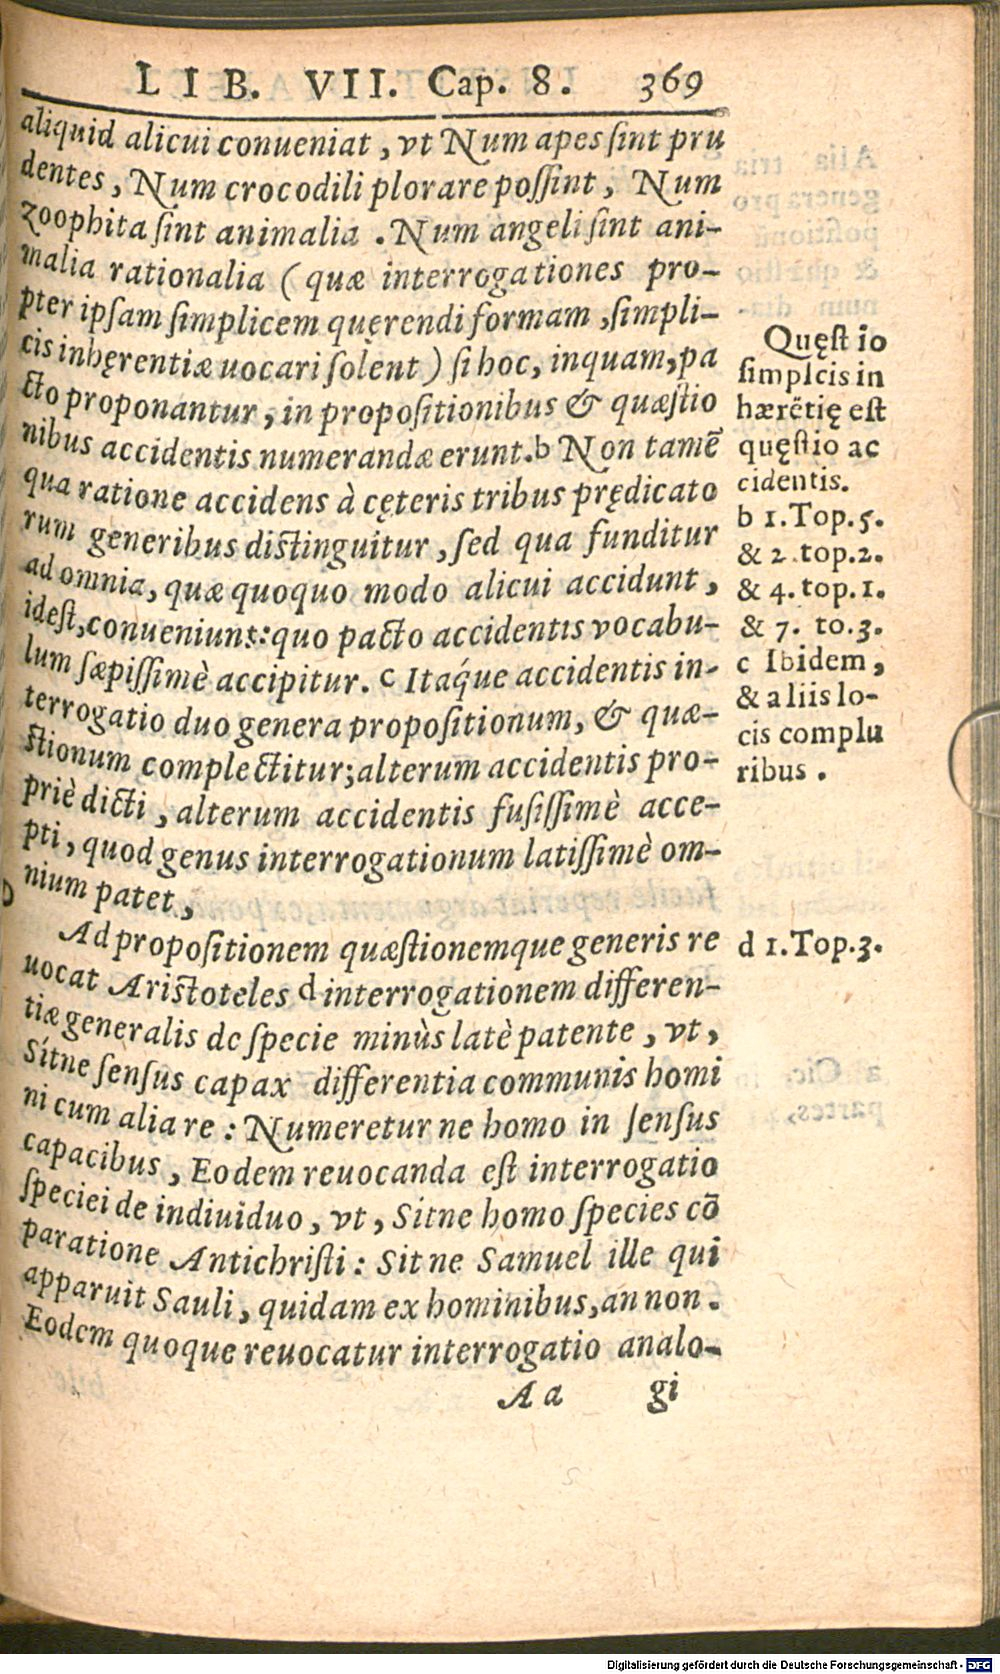 LIB. VII. Cap. 8. 369
aliquid alicui conueniat, vt Num apes ſint pru
dentes, Num crocodili plorare poſſint, Num
zoophita ſint animalia. Num angeli ſint ani-
malia rationalia (quæ interrogationes pro-
pter ipſam ſimplicem quęrendi formam, ſimpli-
cis inhęrentiæ uocari ſolent) ſi hoc, inquam, pa
cto proponantur, in propoſitionibus & quæſtio
nibus accidentis numerandæ erunt. b Non tamē
qua ratione accidens à cęteris tribus prędicato
rum generibus diſtinguitur, ſed qua funditur
ad omnia, quæ quoquo modo alicui accidunt,
ideſt, conueniunt: quo pacto accidentis vocabu-
lum ſæpiſſimè accipitur. c Itaq́ue accidentis in-
terrogatio duo genera propoſitionum, & quæ-
ſtionum complectitur; alterum accidentis pro-
priè dicti, alterum accidentis fuſiſſimè acce-
pti, quod genus interrogationum latiſſimè om-
nium patet,
Ad propoſitionem quæſtionemque generis re
uocat Ariſtoteles d interrogationem differen-
tiæ generalis de ſpecie minùs latè patente, vt,
Sitne ſenſus capax differentia communis homi
ni cum alia re: Numeretur ne homo in ſenſus
capacibus, Eodem reuocanda eſt interrogatio
ſpeciei de indiuiduo, vt, Sitne homo ſpecies cō
paratione Antichriſti: Sit ne Samuel ille qui
apparuit Sauli, quidam ex hominibus, an non.
Eodem quoque reuocatur interrogatio analo-
Aa gi
Quęſtio
ſimplcis in
hærētię eſt
quęſtio ac
cidentis.
b 1. Top. 5.
& 2 top. 2.
& 4. top. 1.
& 7. to. 3.
c Ibidem,
& aliis lo-
cis complu
ribus.
d 1. Top. 3.
D
Digitalisierung gefördert durch die Deutsche Forschungsgemeinschaft - DFG